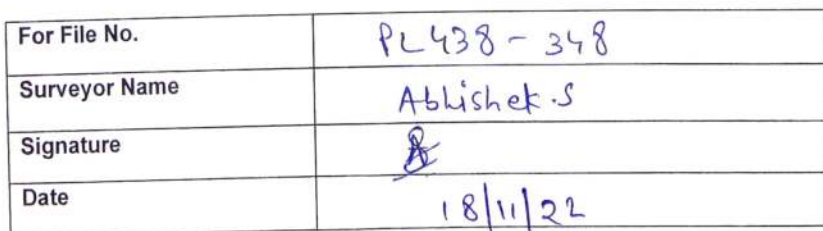 For File No. PL438-348
Surveyor Name Abhishek.S
Signature
Date 18/11/22